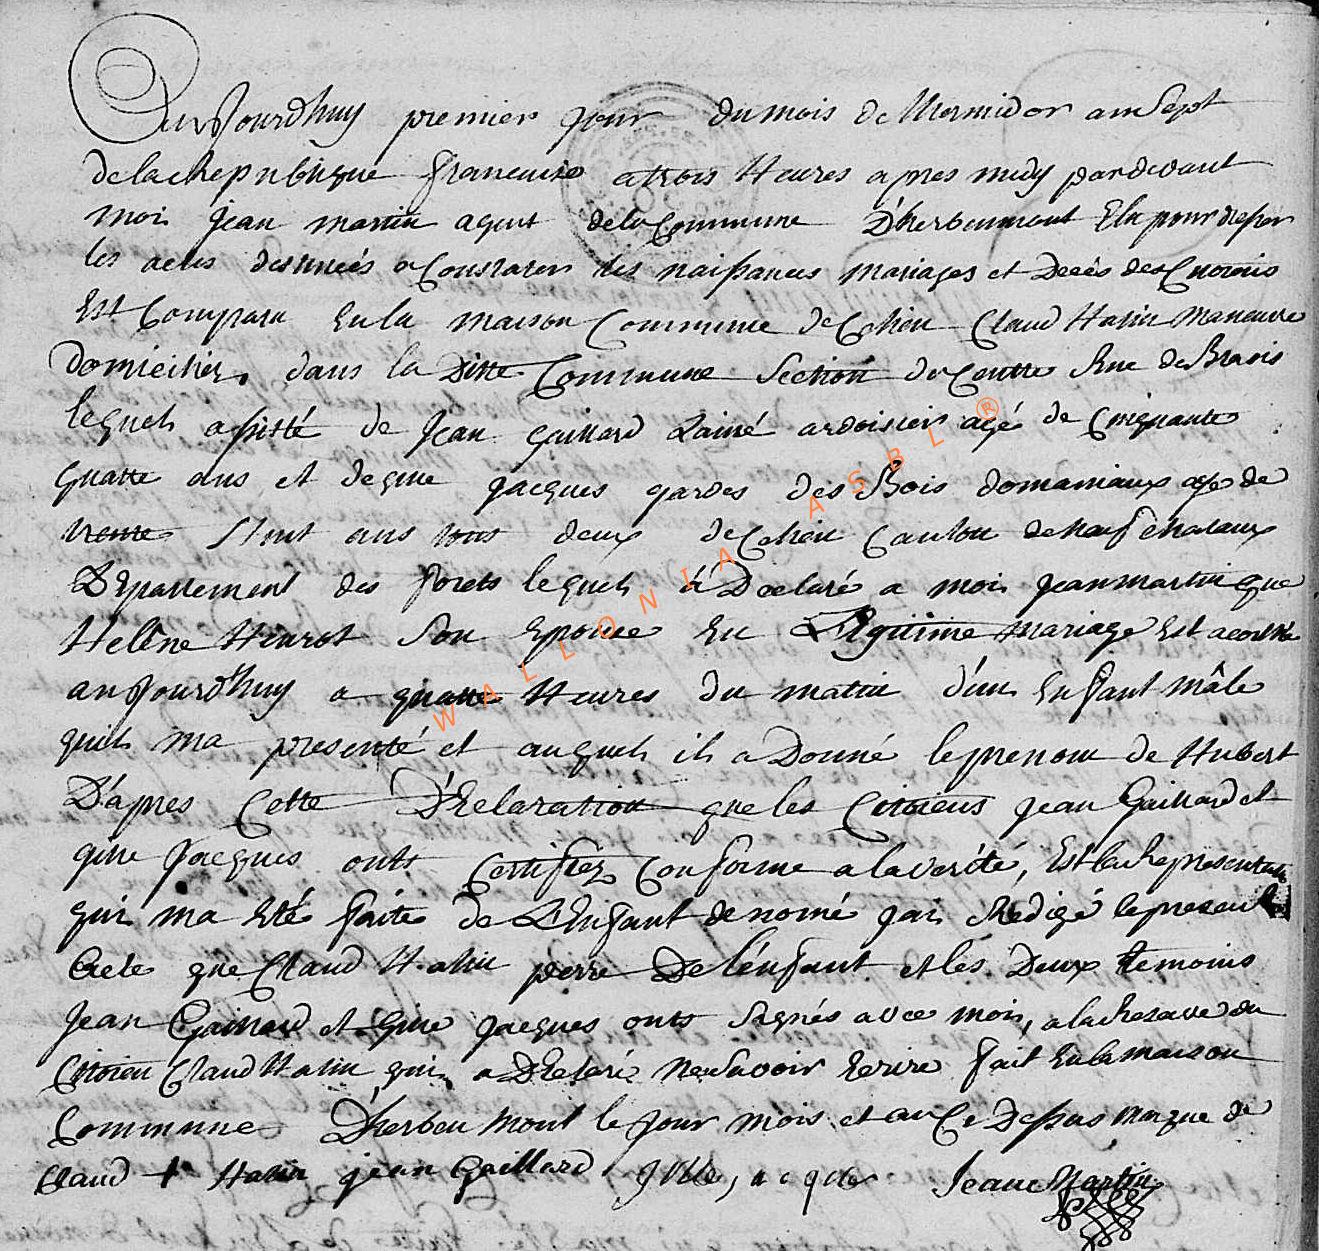 aujourdhuy premier jour du mois de Mermidor an Sept
de la Republique francaise a trois Heures apres midy pardevant
moi jean martin agent de la Commune D'herbeumont Elu pour dresser
les actes destineés a Constater les naissances mariages et Decés des Citoiens
Est Comparu En la maison Commune de Celieu Claud Halin Maneuvre
Domicilié dans la Ditte Commune Section du Centre Rue de
lequels assisté de Jean Gaillard Lainé ardoisier agé de Cinquante
quatte ans et de gille jacques gardes des Bois domainiaux age de
trente ans tous deux de Celieu Canton de Neufchataux
Departement des forets lequels à Declaré a moi jean martin que
Helêne Henrot Son Epouse En Legitime mariage Est acouchée
aujourd'huy a quatte Heures du matin d'un Enfant mâle
quils ma presenté et auquels ils a Donné le prenom de Hubert
D'apres Cette D'Eclaration que les Citoiens jean Gaillard et
gille Jacques onts Certifiez Conforme a la verité, Est la Representation
qui ma Eté faite de L'Enfant denomé jai Redigé le present
acte que Claud Halin perre De l'enfant et les Deux temoins
jean Gaillard et gille jacques onts Signés avec moi, a la Reserve du
Citoien Claud Halin qui a DEclaré ne Savoir Ecrire fait En la maison
Commune D'herbeumont le jour mois et an Ci Dessus marque de
Claud + Halin jean Gaillard gille, jacque Jean Martin
WALLONIA ASBL ®